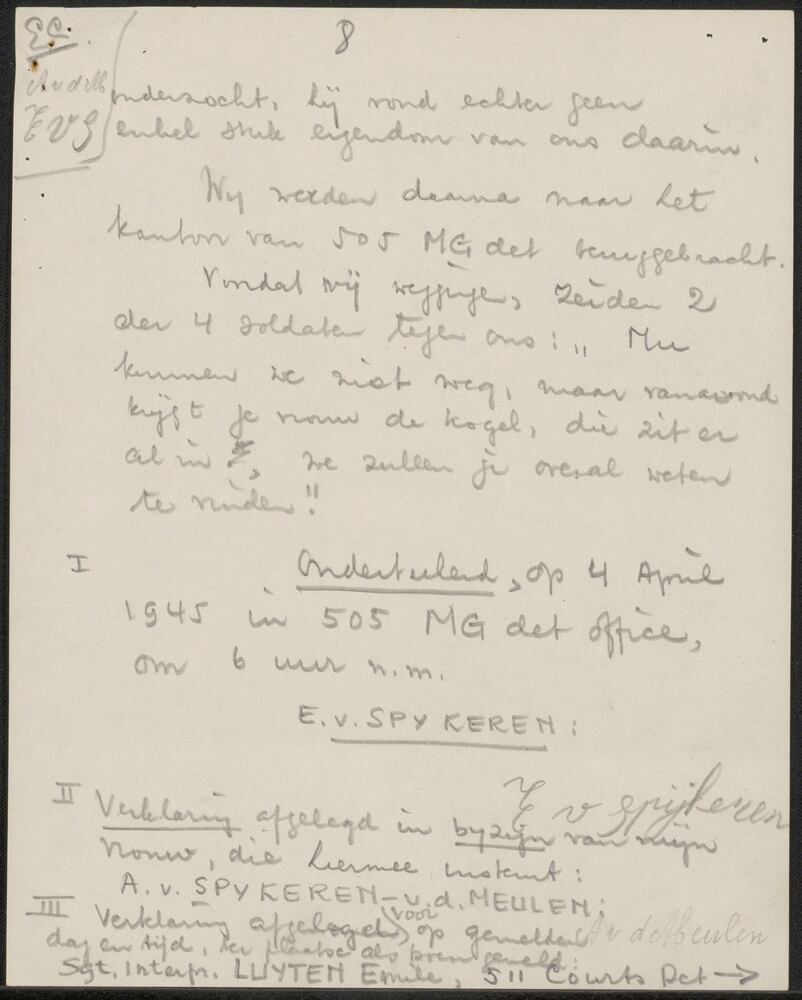 8
EG.
AvdM
EVS
onderzocht, hij vond echter geen
enkel stuk eigendom van ons daarin.
Wij werden daarna naar het
kantoor van 505 MG det teruggebracht.
Voordat wij weggingen, zeiden 2
der 4 soldaten tegen ons: „ Nu
kunnen we niet weg, maar vanavond
krijgt je vrouw de kogel, die zit er
al in, we zullen je overal weten
te vinden!!
I Ondertekend, op 4 April
1945 in 505 MG det office,
om 6 uur n.m.
E. v. SPYKEREN:
E v Spijkeren
II Verklaring afgelegd in byzijn van mijn
vrouw, die hiermee instemt:
A. v. SPYKEREN - v. d. MEULEN:
A v d Meulen
III Verklaring afgelegd voor, op gemelden
dag en tijd, ter plaatse als boven gemeld:
Sgt. Interpr. LUYTEN Emile, 511 Courts Det →